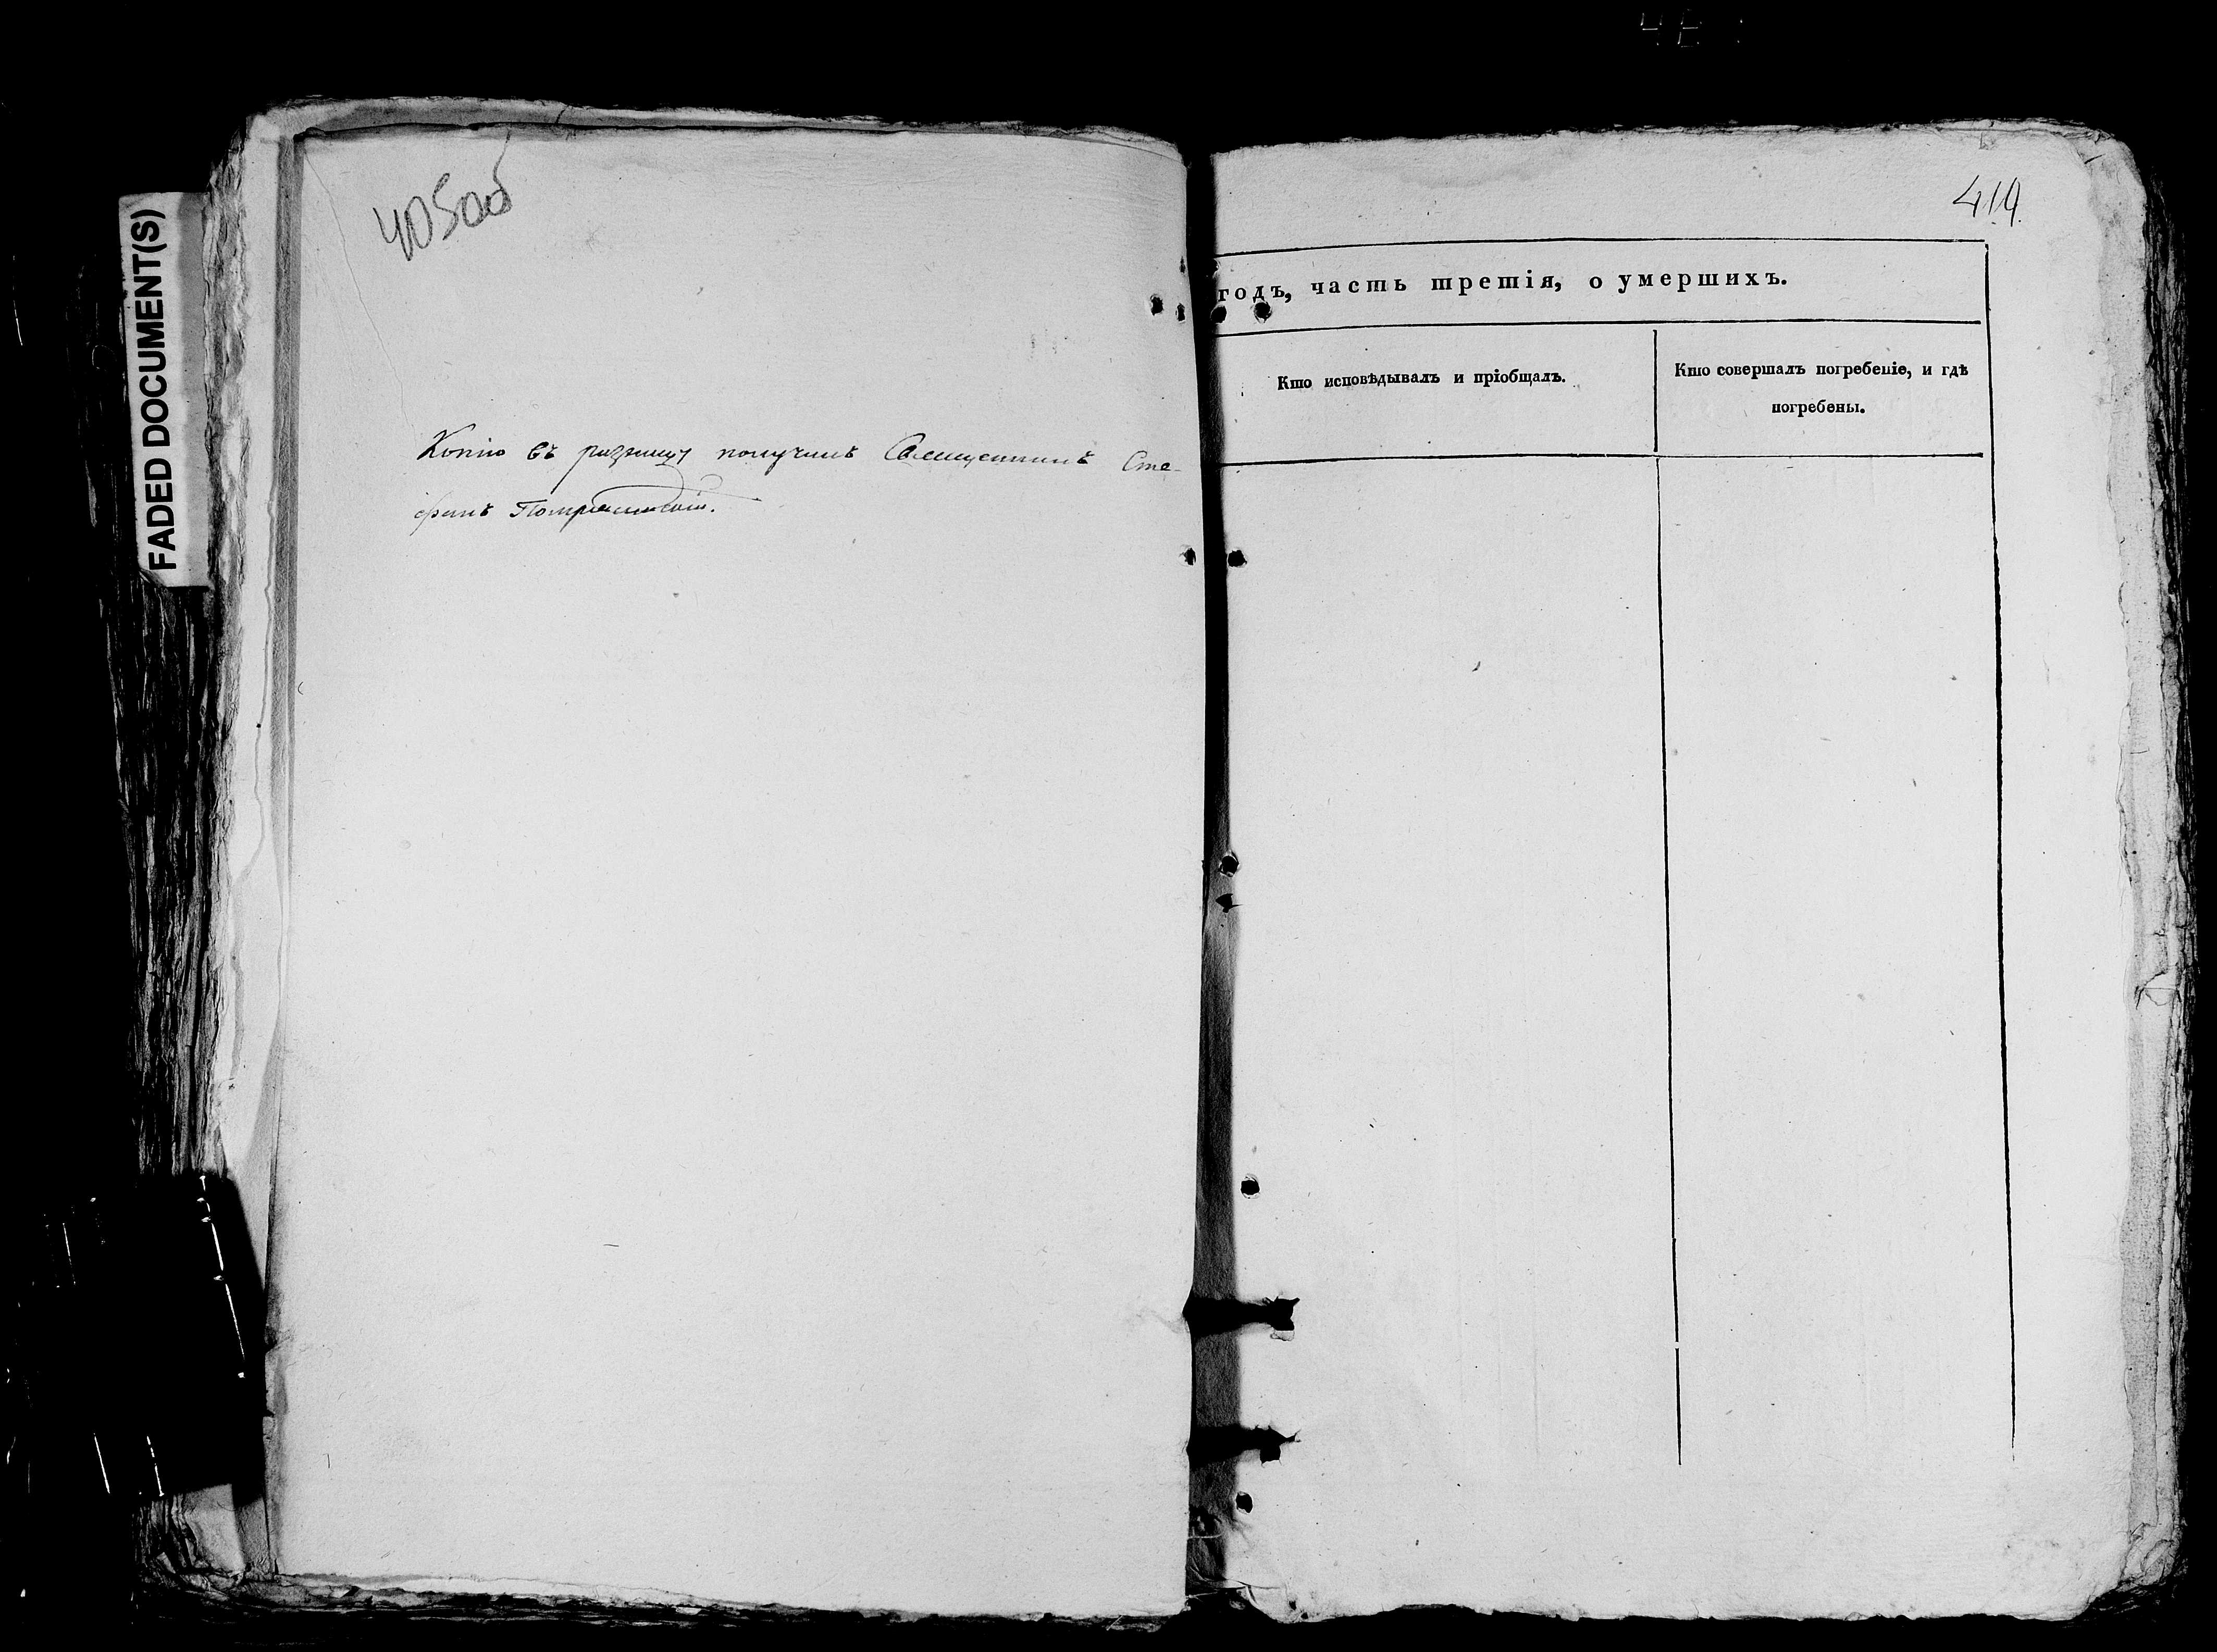 FADED DOCUMENT(S)
405об
Копію въ ризницу получилъ Священникъ Сте-
фанъ
414
годъ, часть третія, о умершихъ.
Кто исповѣдывалъ и пріобщалъ.
Кто совершалъ погребеніе, и гдѣ
погребены.